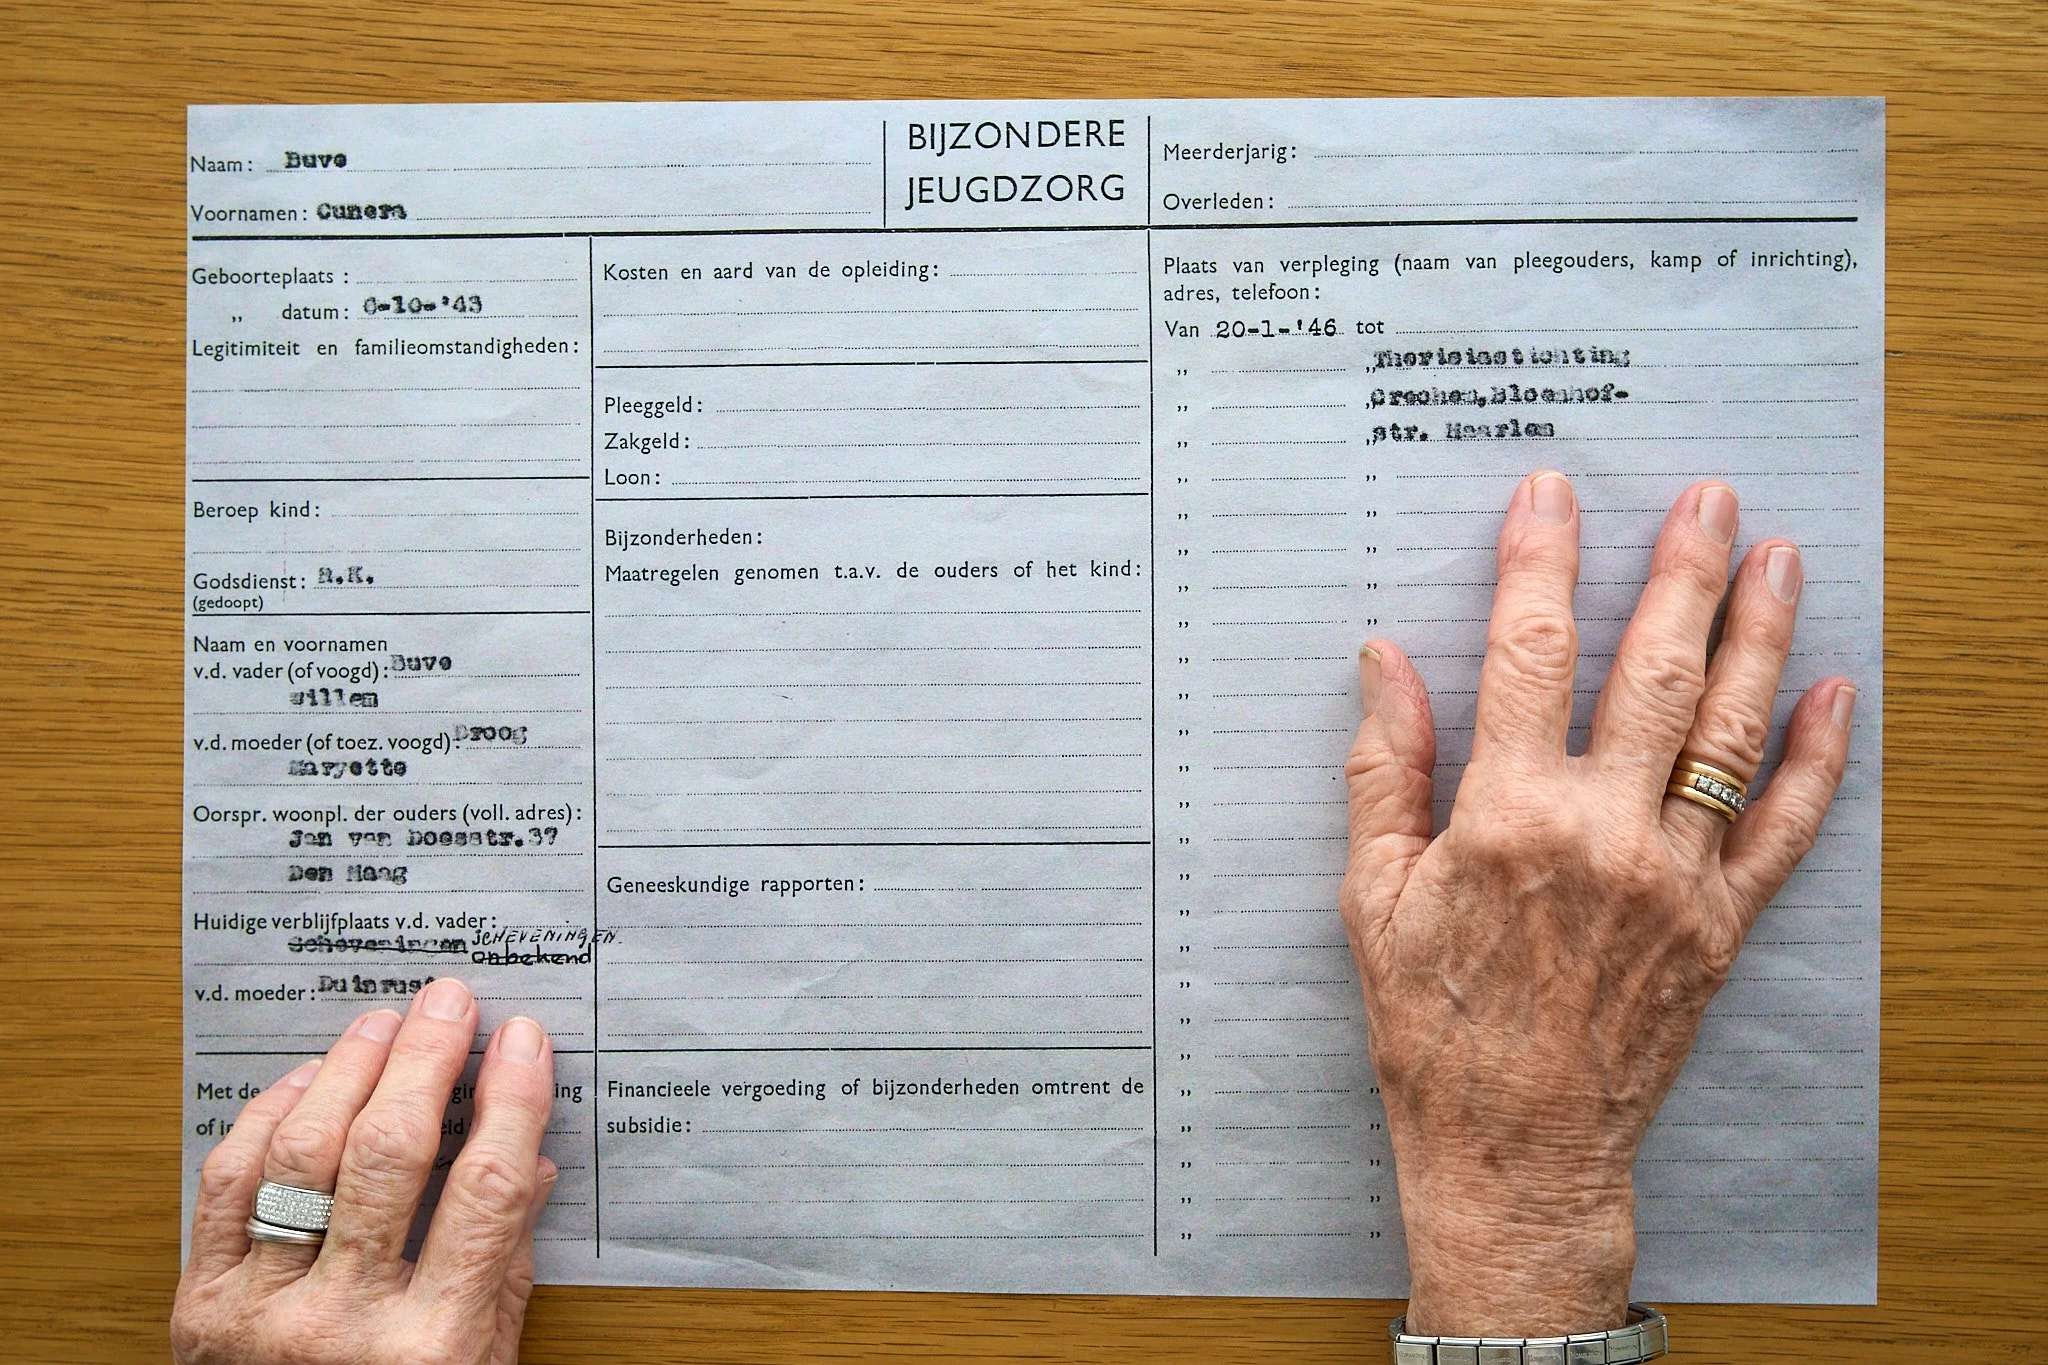 Naam: Buve
Voornamen: Cunera
BIJZONDERE
JEUGDZORG
Meerderjarig:
Overleden:
Geboorteplaats:
„ datum: 6-10-'43
Legitimiteit en familieomstandigheden:
Beroep kind:
Godsdienst: R.K.
(gedoopt)
Naam en voornamen
v.d. vader (of voogd): Buve
Willem
v.d. moeder (of toez. voogd): Droog
Maryette
Oorspr. woonpl. der ouders (voll. adres):
Jan van Doesstr.37
Den Haag
Huidige verblijfplaats v.d. vader:
Scheveningen SCHEVENINGEN.
onbekend
v.d. moeder: Duinrust
Met de
of in
Kosten en aard van de opleiding:
Pleeggeld:
Zakgeld:
Loon:
Bijzonderheden:
Maatregelen genomen t.a.v. de ouders of het kind:
Geneeskundige rapporten:
Financieele vergoeding of bijzonderheden omtrent de
subsidie:
Plaats van verpleging (naam van pleegouders, kamp of inrichting),
adres, telefoon:
Van 20-1-'46 tot
„ „Theresiastichting
„ „Crechen,Bloemhof-
„ „str. Haarlem